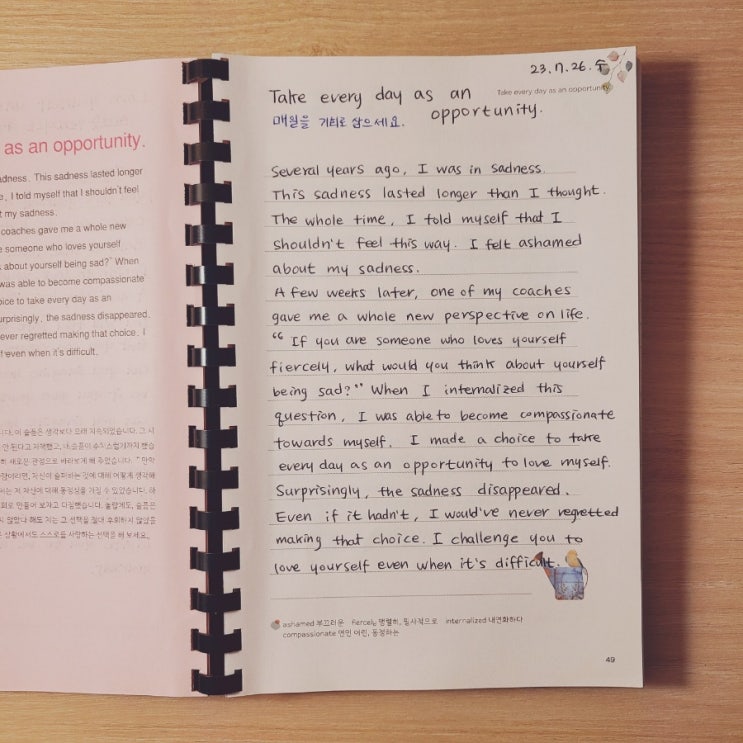 as an opportunity.
adness. This sadness lasted longer
e, I told myself that I shouldn't feel
t my sadness.
coaches gave me a whole new
e someone who loves yourself
k about yourself being sad?" When
was able to become compassionate
oice to take every day as an
urprisingly, the sadness disappeared.
ever regretted making that choice. I
f even when it's difficult.
니다. 이 슬픔은 생각보다 오래 지속되었습니다. 그 시
안 된다고 자책했고, 내 슬픔이 수치스럽기까지 했습
히 새로운 관점으로 바라보게 해 주었습니다. "만약
사람이라면, 자신이 슬퍼하는 것에 대해 어떻게 생각해
서는 저 자신에 대해 동정심을 가질 수 있었습니다. 하
회로 만들어 보자고 다짐했습니다. 놀랍게도, 슬픔은
지 않았다 해도 저는 그 선택을 절대 후회하지 않았을
든 상황에서도 스스로를 사랑하는 선택을 해 보세요.
23.7.26.수
Take every day as an opportunity.
Take every day as an
opportunity.
매일을 기회로 삼으세요.
Several years ago, I was in sadness.
This sadness lasted longer than I thought.
The whole time, I told myself that I
shouldn't feel this way. I felt ashamed
about my sadness.
A few weeks later, one of my coaches
gave me a whole new perspective on life.
"If you are someone who loves yourself
fiercely, what would you think about yourself
being sad?" When I internalized this
question, I was able to become compassionate
towards myself. I made a choice to take
every day as an opportunity to love myself.
Surprisingly, the sadness disappeared.
Even if it hadn't, I would've never regretted
making that choice. I challenge you to
love yourself even when it's difficult.
ashamed 부끄러운 fiercely 맹렬히, 필사적으로 internalized 내면화하다
compassionate 연민 어린, 동정하는
49